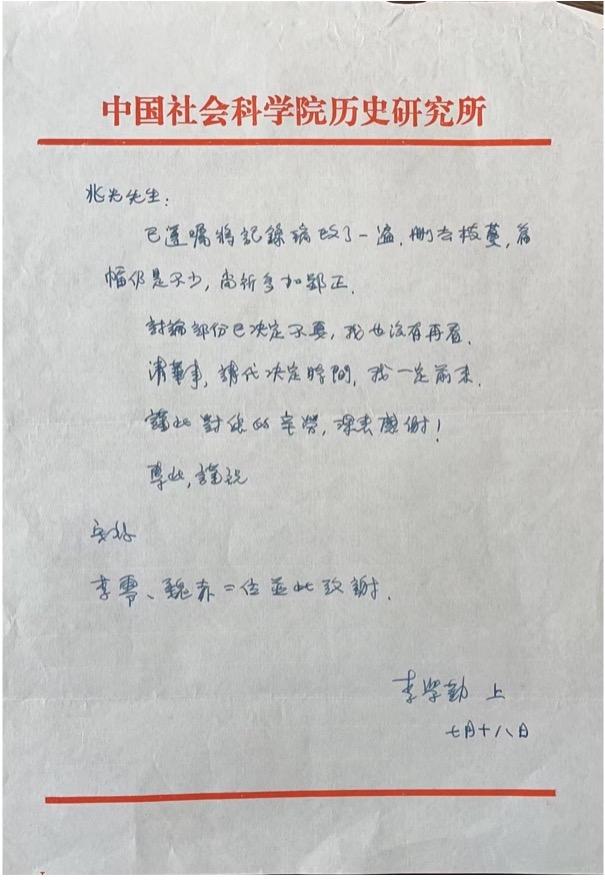 中国社会科学院历史研究所
兆光先生：
已遵嘱将記錄稿改了一遍，删去枝蔓，篇
幅仍是不少，尚祈多加郢正．
討論部份已决定不要，我也没有再看．
清華事，請代决定時間，我一定前来．
謹此對您的辛勞，深表感謝！
專此，謹祝
安好
李零、魏赤二位並此致謝．
李学勤 上
七月十八日